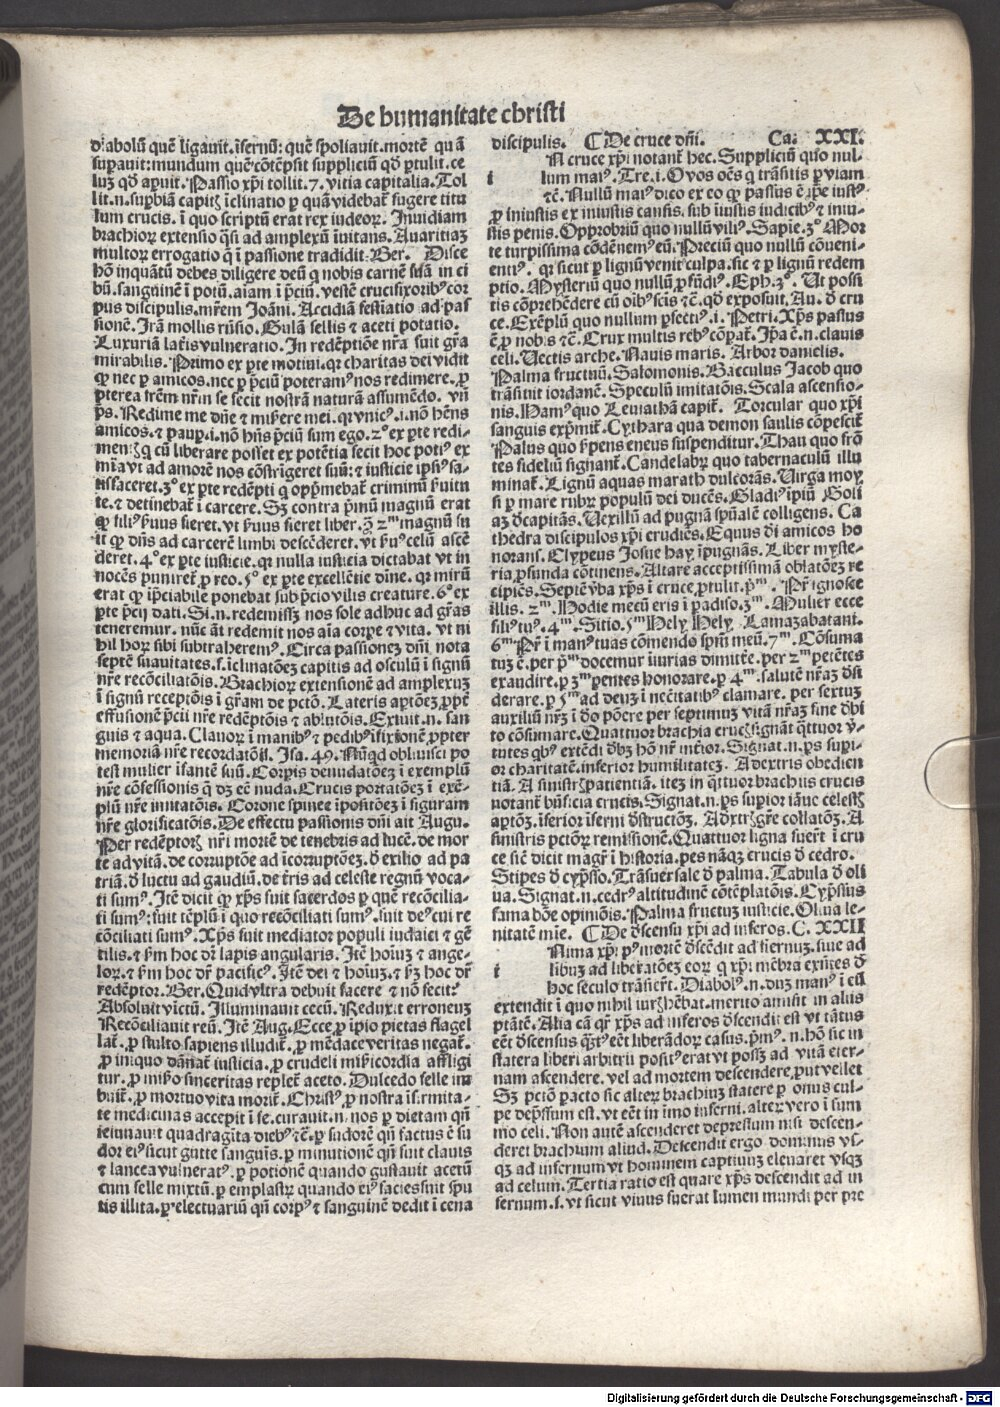 De humanitate christi
diabolū quē ligauit. īfernū: quē spoliauit. mortē quā
supauit: mundum quē cōtēpsit suppliciū qđ ptulit. ce
luꝫ qđ apuit. Passio xp̄i tollit .7. vitia capitalia. Tol
lit .n. supbiā capitꝭ īclinatio p quā videbat fugere titu
lum crucis. ī quo scriptū erat rex iudeoꝝ. Inuidiam
brachioꝝ extensio q̄si ad amplexū īuitans. Auaritiaꝫ
multoꝝ errogatio q̄ ī passione tradidit. Ber. Disce
hō inquātū debes diligere deū q nobis carnē suā in ci
bū. sanguinē ī potū. aīam ī p̄ciū. vestē crucifixoribꝰ cor
pus discipulis. mr̄em Joāni. Accidiā festinatio ad pas
sionē. Irā mollis rn̄sio. Gulā fellis & aceti potatio.
Luxuriā lateris vulneratio. In redēptiōe nr̄a fuit gr̄a
mirabilis. Primo ex pte motiui. qꝛ charitas dei vidit
ꝙ nec p amicos. nec p p̄ciū poteramꝰ nos redimere. p
pterea fr̄em nr̄m se fecit nostrā naturā assumēdo. vn̄
p̄s. Redime me dn̄e & misere mei. qꝛ vnicꝰ .i. nō hn̄s
amicos. & paup .i. nō hn̄s p̄ciū sum ego. 2º ex pte redi-
mentꝭ q cū liberare posset ex potētia fecit hoc potiꝰ ex
mīa vt ad amorē nos cōstrigeret suū: & iusticie ipsiꝰ sa-
tissaceret. 3º ex pte redēpti q opp̄mebat criminū ẜuitu
te. & detinebat ī carcere. Sꝫ contra p̄mū magnū erat
ꝙ filiꝰ ẜuus fieret. vt ẜuus fieret liber. ꝯ̄ 2ᵐ magnū fu
it ꝙ dn̄s ad carcerē limbi descēderet. vt ẜuꝰ celū ascē
deret. 4º ex pte iusticie. qꝛ nulla iusticia dictabat vt in
nocēs puniret p reo. 5º ex pte excellētie diuīe. qꝛ mirū
erat ꝙ īp̄ciabile ponebat sub p̄cio vilis creature. 6º ex
pte p̄cii dati. Si .n. redemissꝫ nos sole adhuc ad gr̄as
teneremur. nūc aūt redemit nos aīa corpe & vita. vt ni
hil hoꝝ sibi subtraheremꝰ. Circa passionē dn̄i nota
septē suauitates .s. īclinatōeꝫ capitis ad osculū ī signū
nr̄e recōciliatōis. Brachioꝝ extensionē ad amplexuꝫ
ī signū receptōis ī gr̄am de pctō. Lateris aptōeꝫ ppt
effusionē p̄cii nr̄e redēptōis & ablutōis. Exiuit .n. san
guis & aqua. Clauoꝝ ī manibꝰ & pedibꝰ īfixionē ppter
memoriā nr̄e recordatōis. Isa. 49. Nūqđ obliuisci po
test mulier īfantē suū. Corpis denudatōeꝫ ī exemplū
nr̄e cōfessionis q dꝫ eē nuda. Crucis portatōeꝫ ī exē-
plū nr̄e imitatōis. Corone spinee īpositōeꝫ ī figuram
nr̄e glorificatōis. De effectu passionis dn̄i ait Augu.
Per redēptorꝭ nr̄i mortē de tenebris ad lucē. de mor
te ad vitā. de corruptōe ad īcorruptōeꝫ. đ exilio ad pa
triā. đ luctu ad gaudiū. de tr̄is ad celeste regnū voca-
ti sumꝰ. Itē dicit ꝙ xp̄s fuit sacerdos p quē recōcilia-
ti sumꝰ: fuit tēplū ī quo recōciliati sumꝰ. fuit deꝰ cui re
cōciliati sumꝰ. Xp̄s fuit mediator populi iudaici & gē
tilis. & ẜm hoc dꝛ lapis angularis. Itē hoīuꝫ & ange-
loꝝ. & ẜm hoc dꝛ pacificꝰ. Itē dei & hoīuꝫ. & ẜꝫ hoc dꝛ
redēptor. Ber. Quid vltra debuit facere & nō fecit?
Absoluit vīctū. Illuminauit cecū. Reduxit erroneuꝫ
Recōciliauit reū. Itē Aug. Ecce p īpio pietas flagel
lat. p stulto sapiens illudit. p mēdace veritas negat.
p iniquo dānat iusticia. p crudeli mīscordia affligi
tur. p misero sinceritas replet aceto. Dulcedo felle im
buit. p mortuo vita morit. Christꝰ p nostra īfirmita-
te medicinas accepit ī se. curauit .n. nos p dietam qn̄
ieiunauit quadragita diebꝰ &c. p sudorē qn̄ factus ē su
dor eiꝰ sicut gutte sanguis. p minutionē qn̄ fuit clauis
& lancea vulneratꝰ. p potionē quando gustauit acetū
cum felle mixtū. p emplastꝝ quando eiꝰ facies fuit spu
tis illita. p electuariū qn̄ corpꝰ & sanguinē dedit ī cena
discipulis. ¶ De cruce dn̄i. Ca. XXI.
IN cruce xp̄i notant hec. Suppliciū quo nul-
i lum maiꝰ. Tre. i. O vos oēs q trāsitis p viam
&c. Nullū maiꝰ dico ex eo ꝙ passus ē ip̄e iustꝰ
p iniustis ex iniustis causis. sub īiustis iudicibꝰ & iniu-
stis penis. Opprobriū quo nullū viliꝰ. Sapie. 3º Mor
te turpissima cōdēnemꝰ eū. Preciū quo nullū cōueni-
entiꝰ. qꝛ sicut p lignū venit culpa. sic & p lignū redem
ptio. Mysteriū quo nullū pfūdiꝰ. Eph. 3º. Ut possi
tis cōprehēdere cū oībꝰ scis &c. qđ exposuit. Au. đ cru
ce. Exēplū quo nullum pfectiꝰ. i. Petri. Xp̄s passus
ē p nobis &c. Crux multis rebꝰ cōpat. Ip̄a ē .n. clauis
celi. Uectis arche. Nauis maris. Arbor danielis.
Palma fructuū. Salomonis. Bacculus Jacob quo
trāsiuit iordanē. Speculū imitatōis. Scala ascensio-
nis. Hamꝰ quo Leuiathā capit. Torcular quo xp̄i
sanguis exp̄mit. Cythara qua demon saulis cōpescit
Palus quo ẜpens eneus suspenditur. Thau quo frō
tes fideliū signant. Candelabꝝ quo tabernaculū illu
minat. Lignū aquas marath dulcorās. Uirga moy
si p mare rubꝝ populū dei ducēs. Gladiꝰ īpiū Goli
aꝫ đcapitās. Uexillū ad pugnā spūalē colligens. Ca
thedra discipulos xp̄i erudiēs. Equus dei amicos ho
norans. Clypeus Josue hay īpugnās. Liber myste-
ria pfunda cōtinens. Altare acceptissimā oblatōeꝫ re
cipiēs. Septē ẜba xp̄s ī cruce ptulit. pᵐ. Pr̄ ignosce
illis. 2ᵐ. Hodie mecū eris ī padiso. 3ᵐ. Mulier ecce
filiꝰ tuꝰ. 4ᵐ. Sitio. 5ᵐ Hely Hely Lamazabatani.
6ᵐ Pr̄ ī manꝰ tuas cōmendo spm̄ meū. 7ᵐ. Cōsuma
tuꝫ ē. per pᵐ docemur iniurias dimitre. per 2ᵐ petētes
exaudire. p 3ᵐ pentes honorare. p 4ᵐ. salutē nr̄aꝫ đsi
derare. p 5ᵐ ad deuꝫ ī nec̄itatibꝰ clamare. per sextuꝫ
auxiliū nr̄ꝫ ī đo pōere per septimuꝫ vitā nr̄aꝫ fine đbi
to cōsumare. Quattuor brachia crucꝭ signāt q̄ttuor v̄-
tutes qbꝰ extēdi đbꝫ hō nr̄ īterior. Signat .n. ps supi-
or charitatē. inferior humilitateꝫ. A dextris obedien
tiā. A sinistrꝭ patientiā. itē in q̄ttuor brachiis crucis
notant bn̄ficia crucis. Signat .n. ps supior ianue celestꝭ
aptōꝫ. īferior īferni đstructōꝫ. A dxtrꝭ gr̄e collatōꝫ. A
sinistris pctōꝝ remissionē. Quattuor ligna fuert ī cru
ce sic dicit magr̄ ī historia. pes nāqꝫ crucis đ cedro.
Stipes đ cyp̄sso. Trāsuersale đ palma. Tabula đ oli
ua. Signat .n. cedrꝰ altitudinē cōtēplatōis. Cyp̄ssus
fama bōe opiniōis. Palma fructuꝫ iusticie. Oliua le-
nitatē mīe. ¶ De đscensu xp̄i ad inferos. C. XXII
ANima xp̄i pꝰ mortē đscēdit ad īfernuꝫ. siue ad
i libuꝫ ad liberatōeꝫ eoꝝ q xp̄i mēbra exītes đ
hoc seculo trāsiert. Diabolꝰ .n. duꝫ manꝰ ī eū
extendit ī quo nihil iurꝭ hēbat. merito amisit in aliis
ptātē. Alia cā qꝛ xp̄s ad inferos đscendit est vt tātus
eēt đscensus q̄ꝫtꝰ eēt liberādoꝝ casus. pᵐꝰ .n. hō sic in
statera liberi arbitrii positꝰ erat vt possꝫ ad vitā eter-
nam ascendere. vel ad mortem descendere. put vellet
Sꝫ pctōm pacto sic alteꝝ brachiuꝫ statere p onus cul-
pe dep̄ssum est. vt eēt in imo inferni. alteꝝ vero ī sum
mo celi. Non autē ascenderet depressum nisi descen-
deret brachium aliud. Descendit ergo dominus vs-
qꝫ ad infernum vt hominem captiuuꝫ eleuaret vsqꝫ
ad celum. Tertia ratio est quare xp̄s descendit ad in
fernum .s. vt sicut viuus fuerat lumen mundi per pre
Digitalisierung gefördert durch die Deutsche Forschungsgemeinschaft - DFG